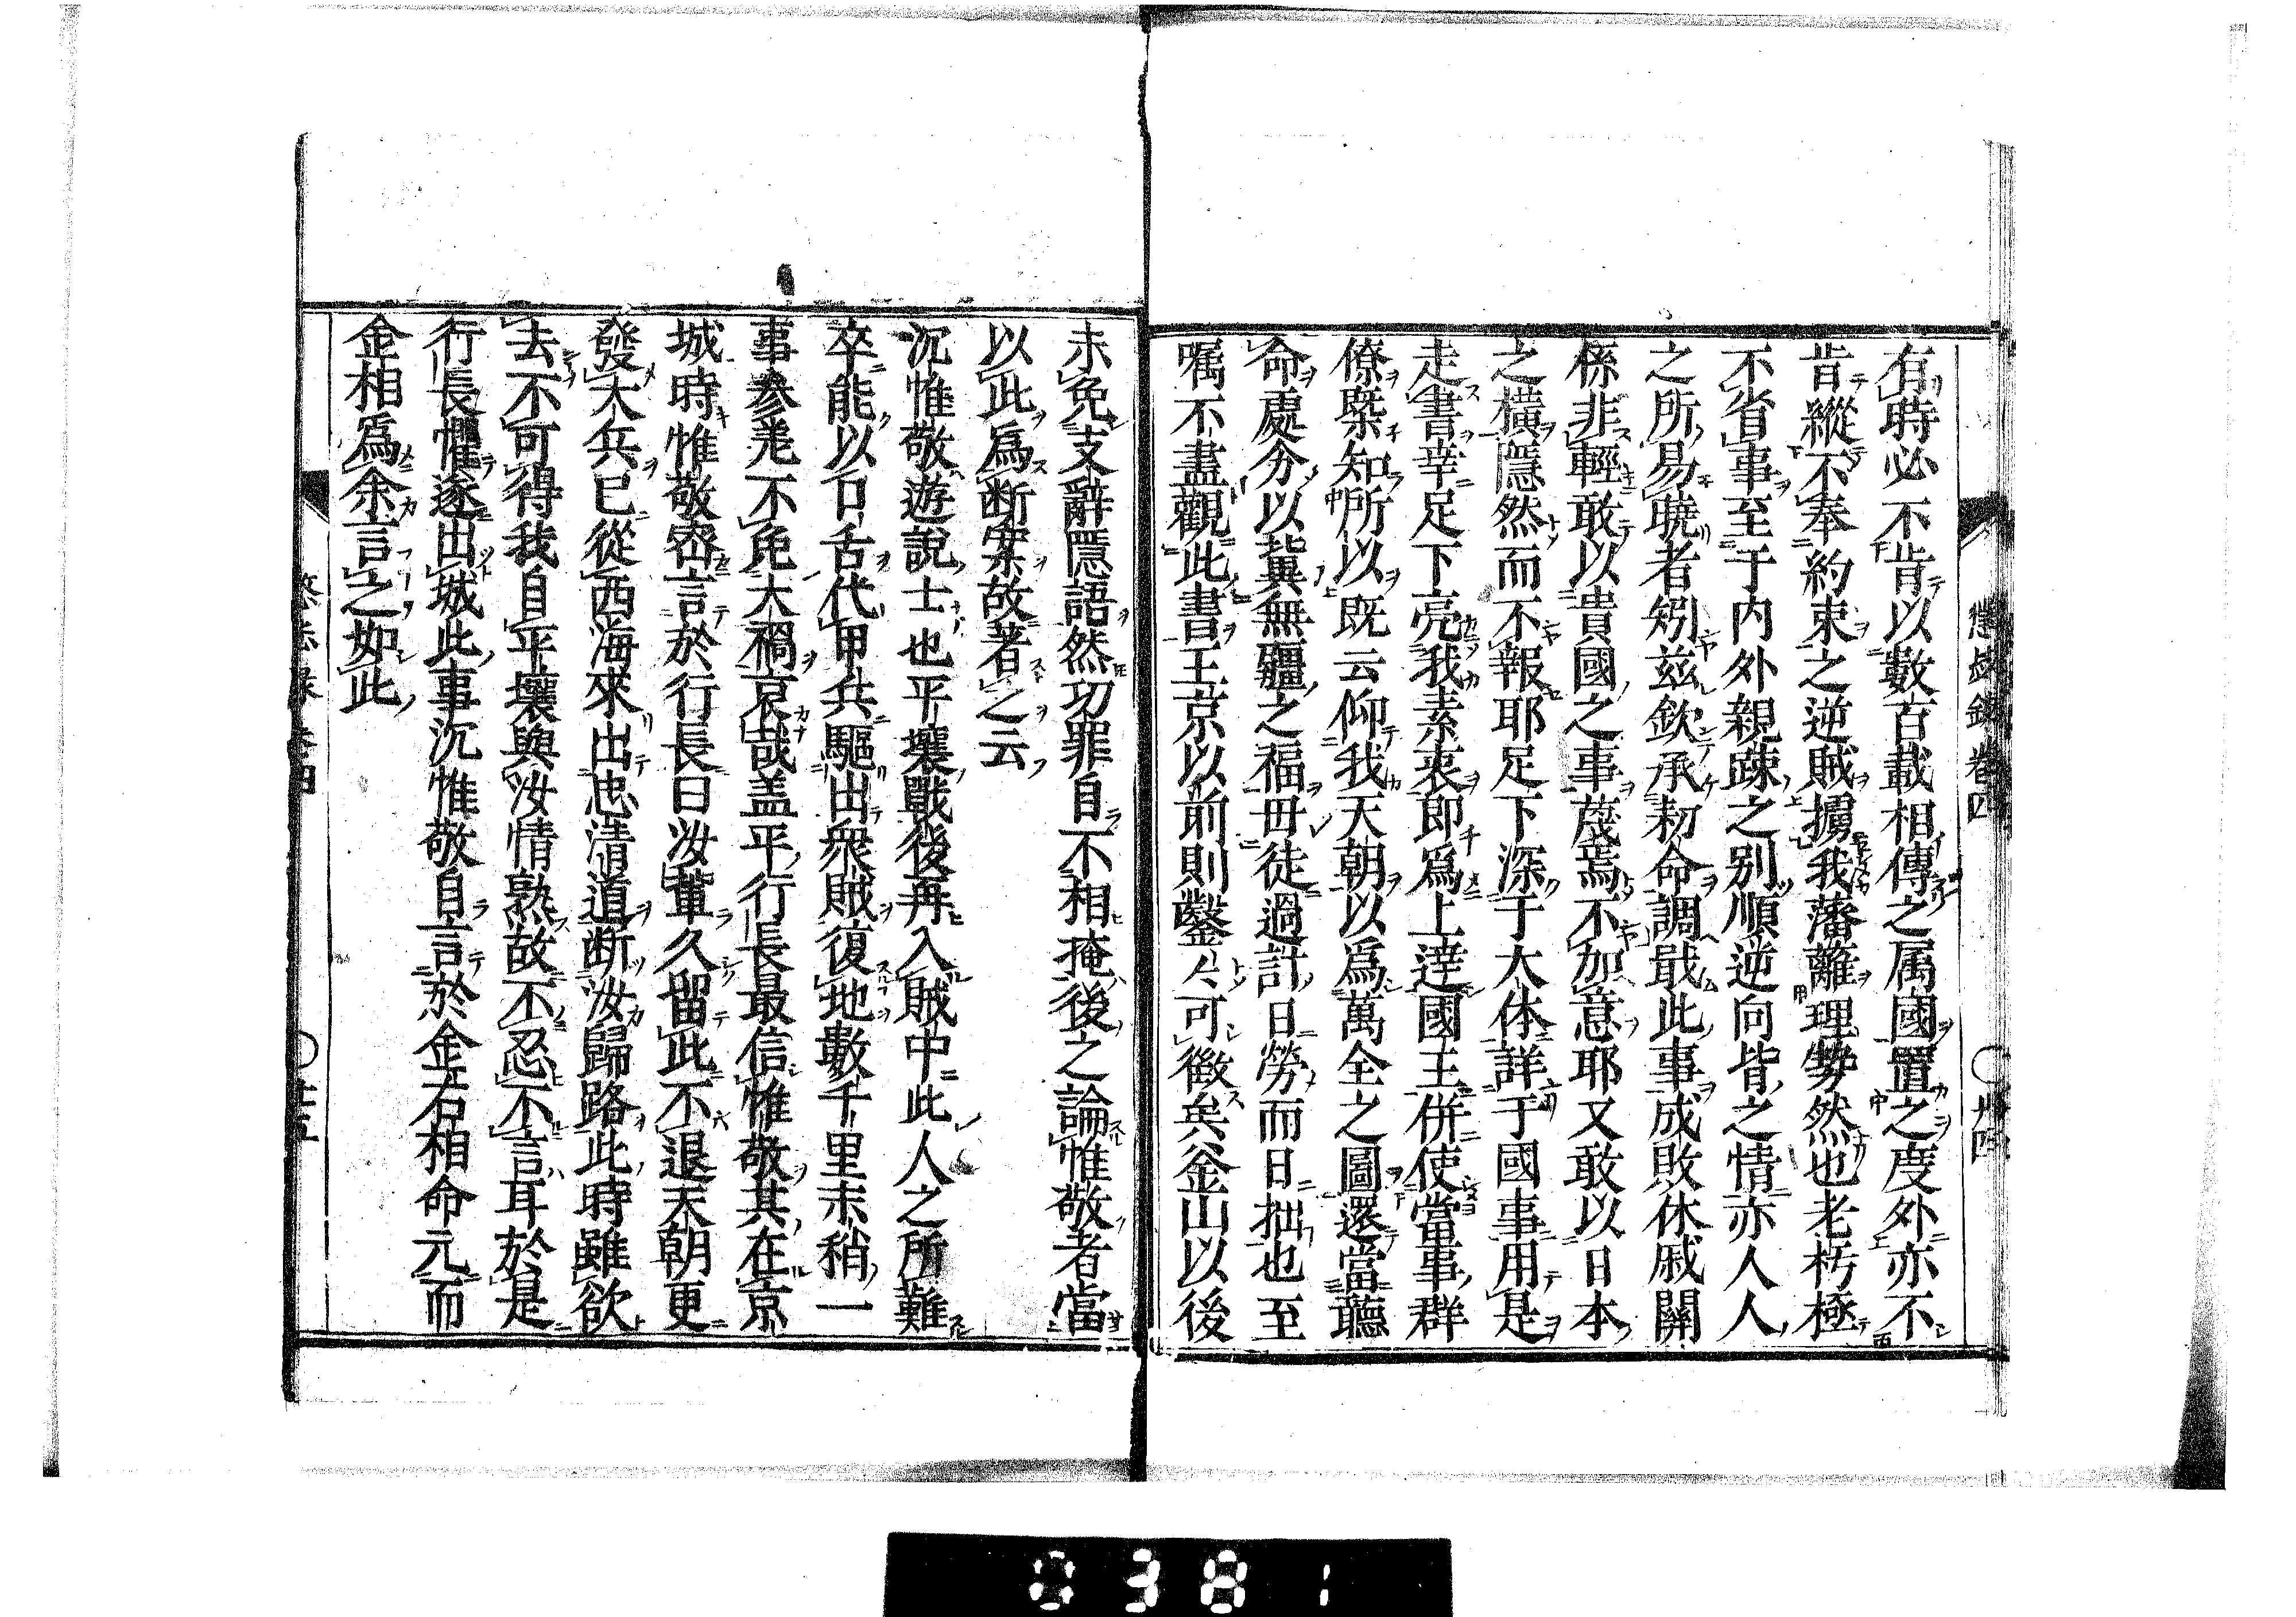 懲毖録卷四 〇卅四
有時必不肯以數百載相傳之属國置之度外亦不
肯縱不奉約束之逆賊擄我藩籬理勢然也老朽極
不省事至于內外親疎之别順逆向背之情亦人人
之所易曉者矧玆欽承勑命調戢此事成敗休戚關
係非輕敢以貴國之事蔑焉不加意耶又敢以日本
之橫隱然而不報耶足下深于大体詳于國事用是
走書幸足下亮我素衷即爲上達國王併使當事群
僚槩知所以既云仰我天朝以爲萬全之圖還當聽
命處分以冀無疆之福毋徒過計日勞而日拙也至
嘱不盡觀此書王京以前則鑿〻可徵矣釜山以後
未免支辭隱語然功罪自不相掩後之論惟敬者當
以此爲断案故著之云
沉惟敬遊說士也平壤戰後再入賊中此人之所難
卒能以口舌代甲兵驅出衆賊復地數千里末稍一
事參差不免大禍哀哉盖平行長最信惟敬其在京
城時惟敬密言於行長曰汝輩久留此不退天朝更
發大兵已從西海來出忠清道断汝歸路此時雖欲
去不可得我自平壤與汝情熟故不忍不言耳於是
行長懼遂出城此事沉惟敬自言於金右相命元而
金相爲余言之如此
卷四 〇
0381